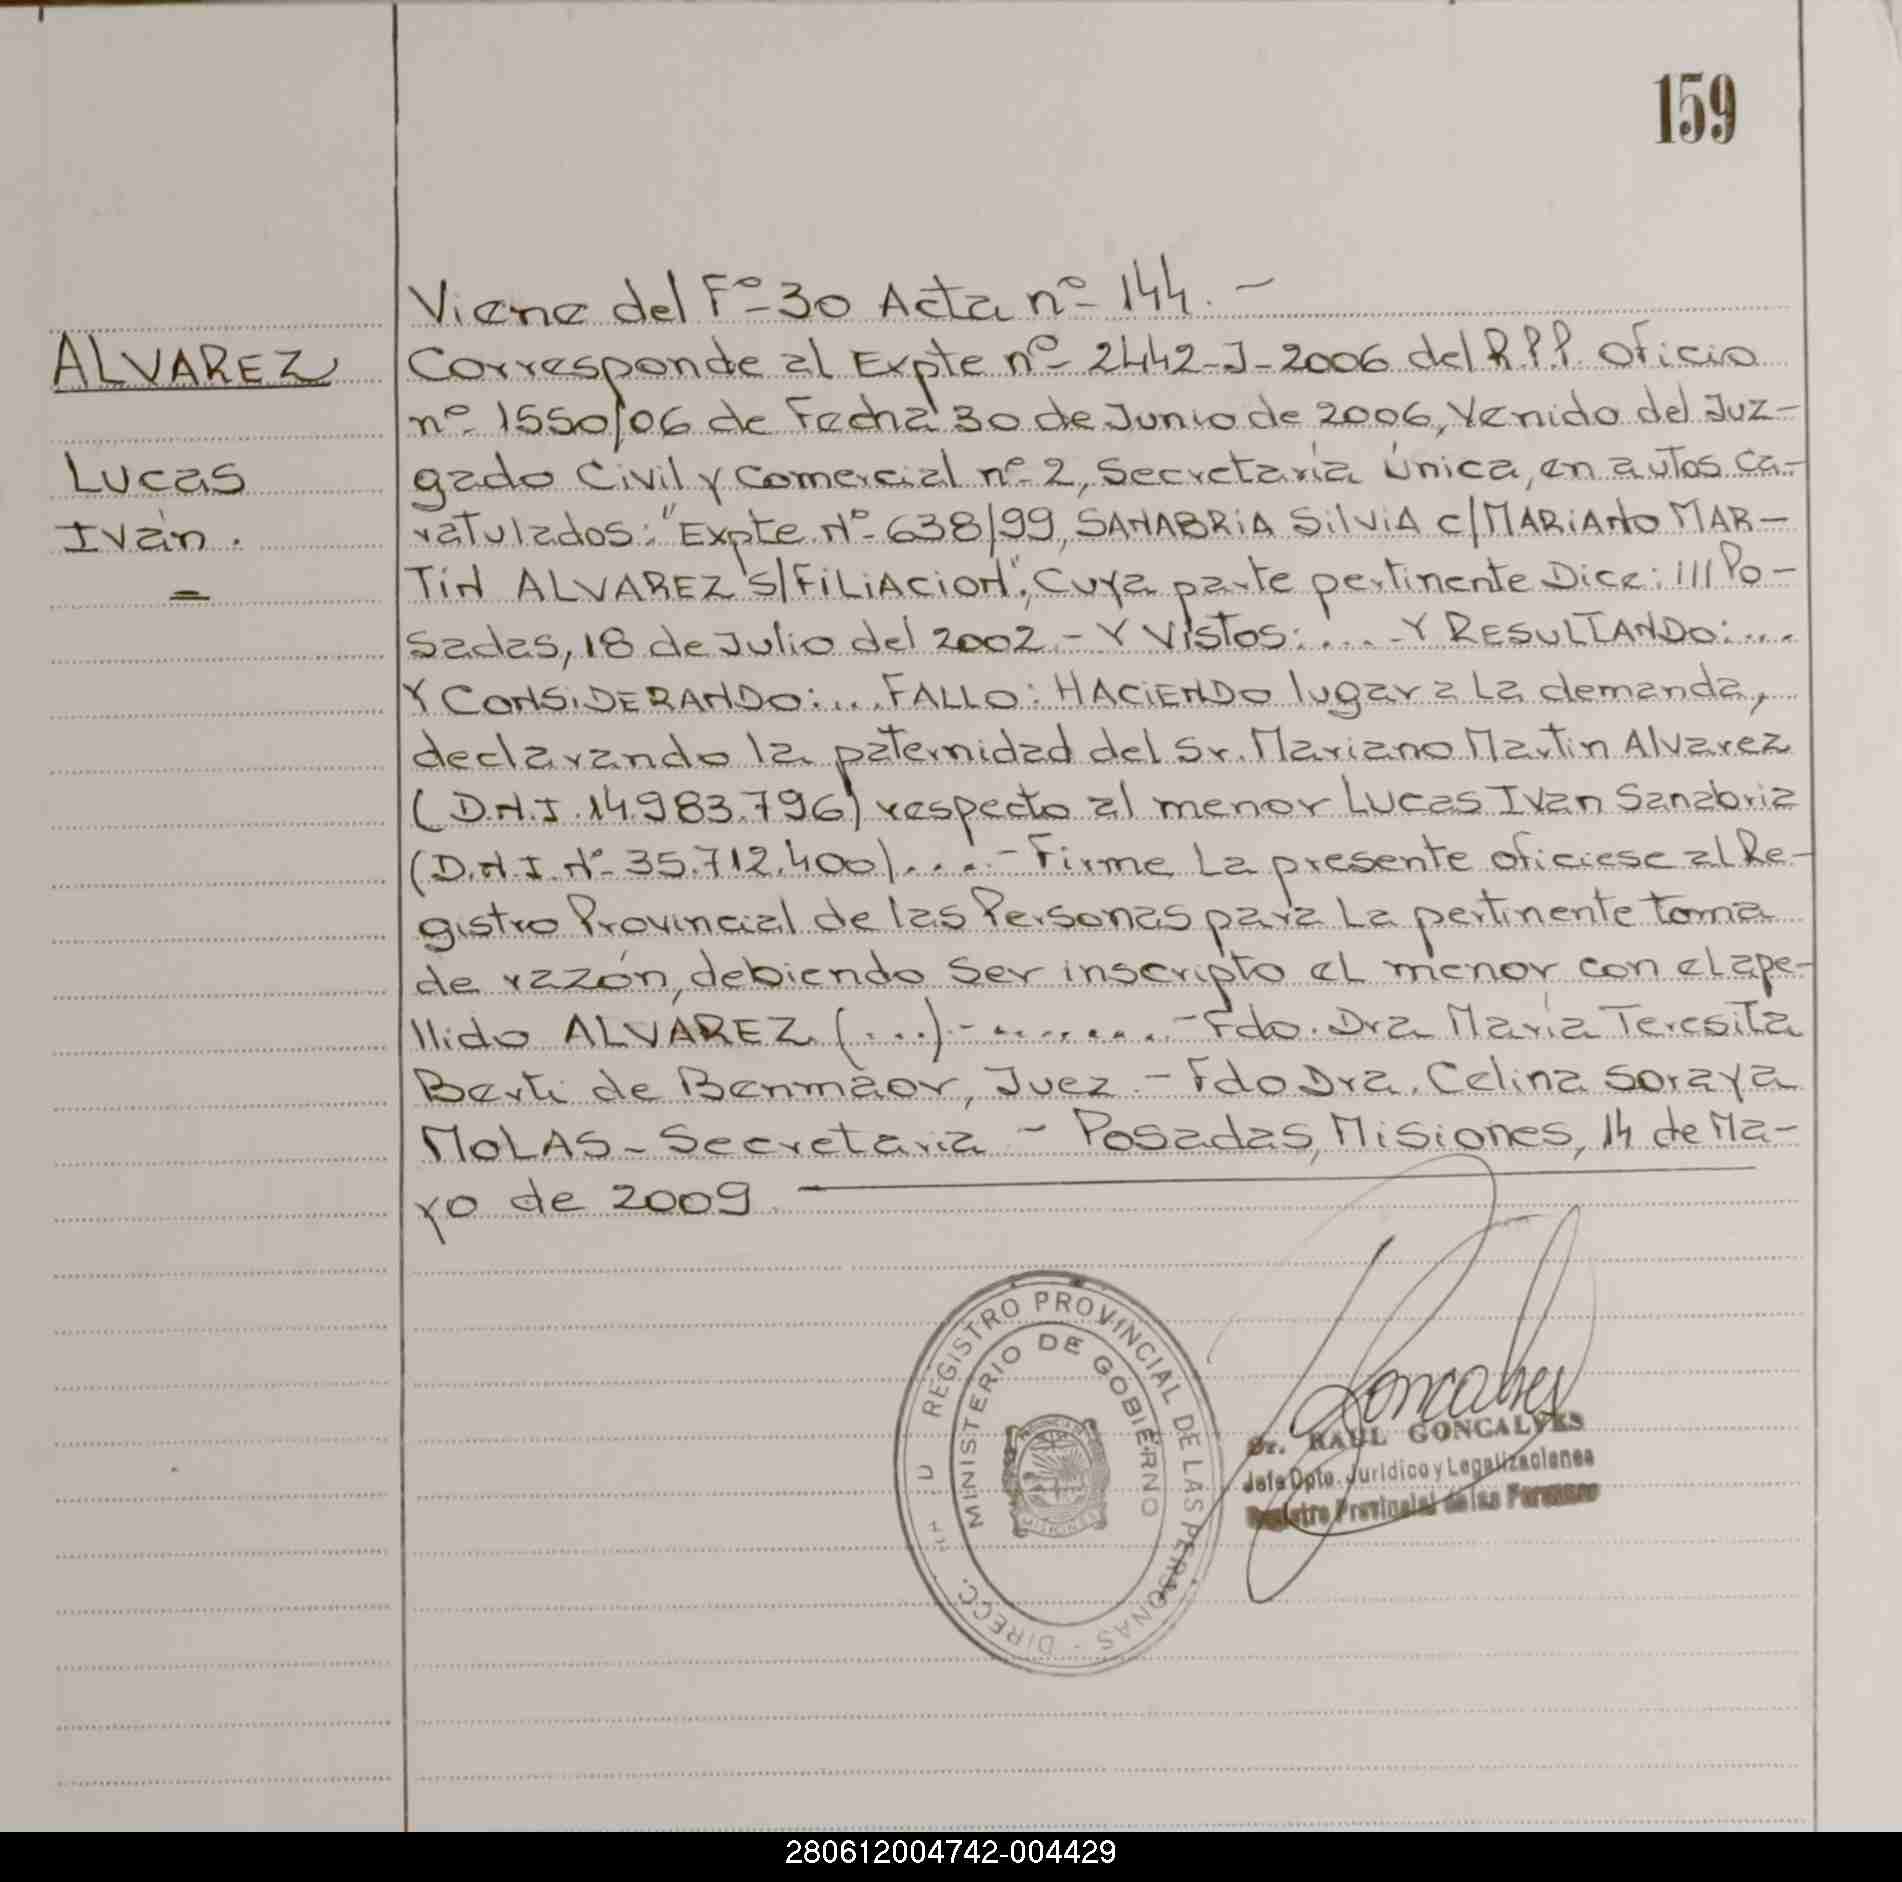 159
ALVAREZ
Lucas
Iván.
Viene del Fº 30 Acta nº 144.-
Corresponde al Expte nº 2442-J-2006 del R.P.P. oficio
nº 1550/06 de Fecha 30 de Junio de 2006, Venido del Juz-
gado Civil y Comercial nº 2, Secretaría Única, en autos ca-
ratulados: "Expte. Nº 638/99, SANABRIA SILVIA c/MARIANO MAR-
TIN ALVAREZ s/FILIACION", Cuya parte pertinente Dice: ///Po-
sadas, 18 de Julio del 2002.- Y VISTOS:.... Y RESULTANDO:....
Y CONSIDERANDO:... FALLO: HACIENDO lugar a La demanda,
declarando la paternidad del Sr. Mariano Martin Alvarez
(D.N.I. 14.983.796) respecto al menor Lucas Ivan Sanabria
(D.N.I. Nº 35.712.400)....- Firme La presente oficiese al Re-
gistro Provincial de las Personas para La pertinente toma
de razón, debiendo ser inscripto el menor con el ape-
llido ALVAREZ. (...)-........-Fdo. Dra María Teresita
Berti de Benmaor, Juez.- Fdo Dra. Celina Soraya
MOLAS - Secretaria - Posadas, Misiones, 14 de Ma-
yo de 2009
REGISTRO PROVINCIAL DE LAS PERSONAS - DIRECC.
MINISTERIO DE GOBIERNO
PROVINCIA DE
MISIONES
Goncalves
Dr. RAUL GONCALVES
Jefe Dpto. Jurídico y Legalizaciones
Registro Provincial de las Personas
280612004742-004429